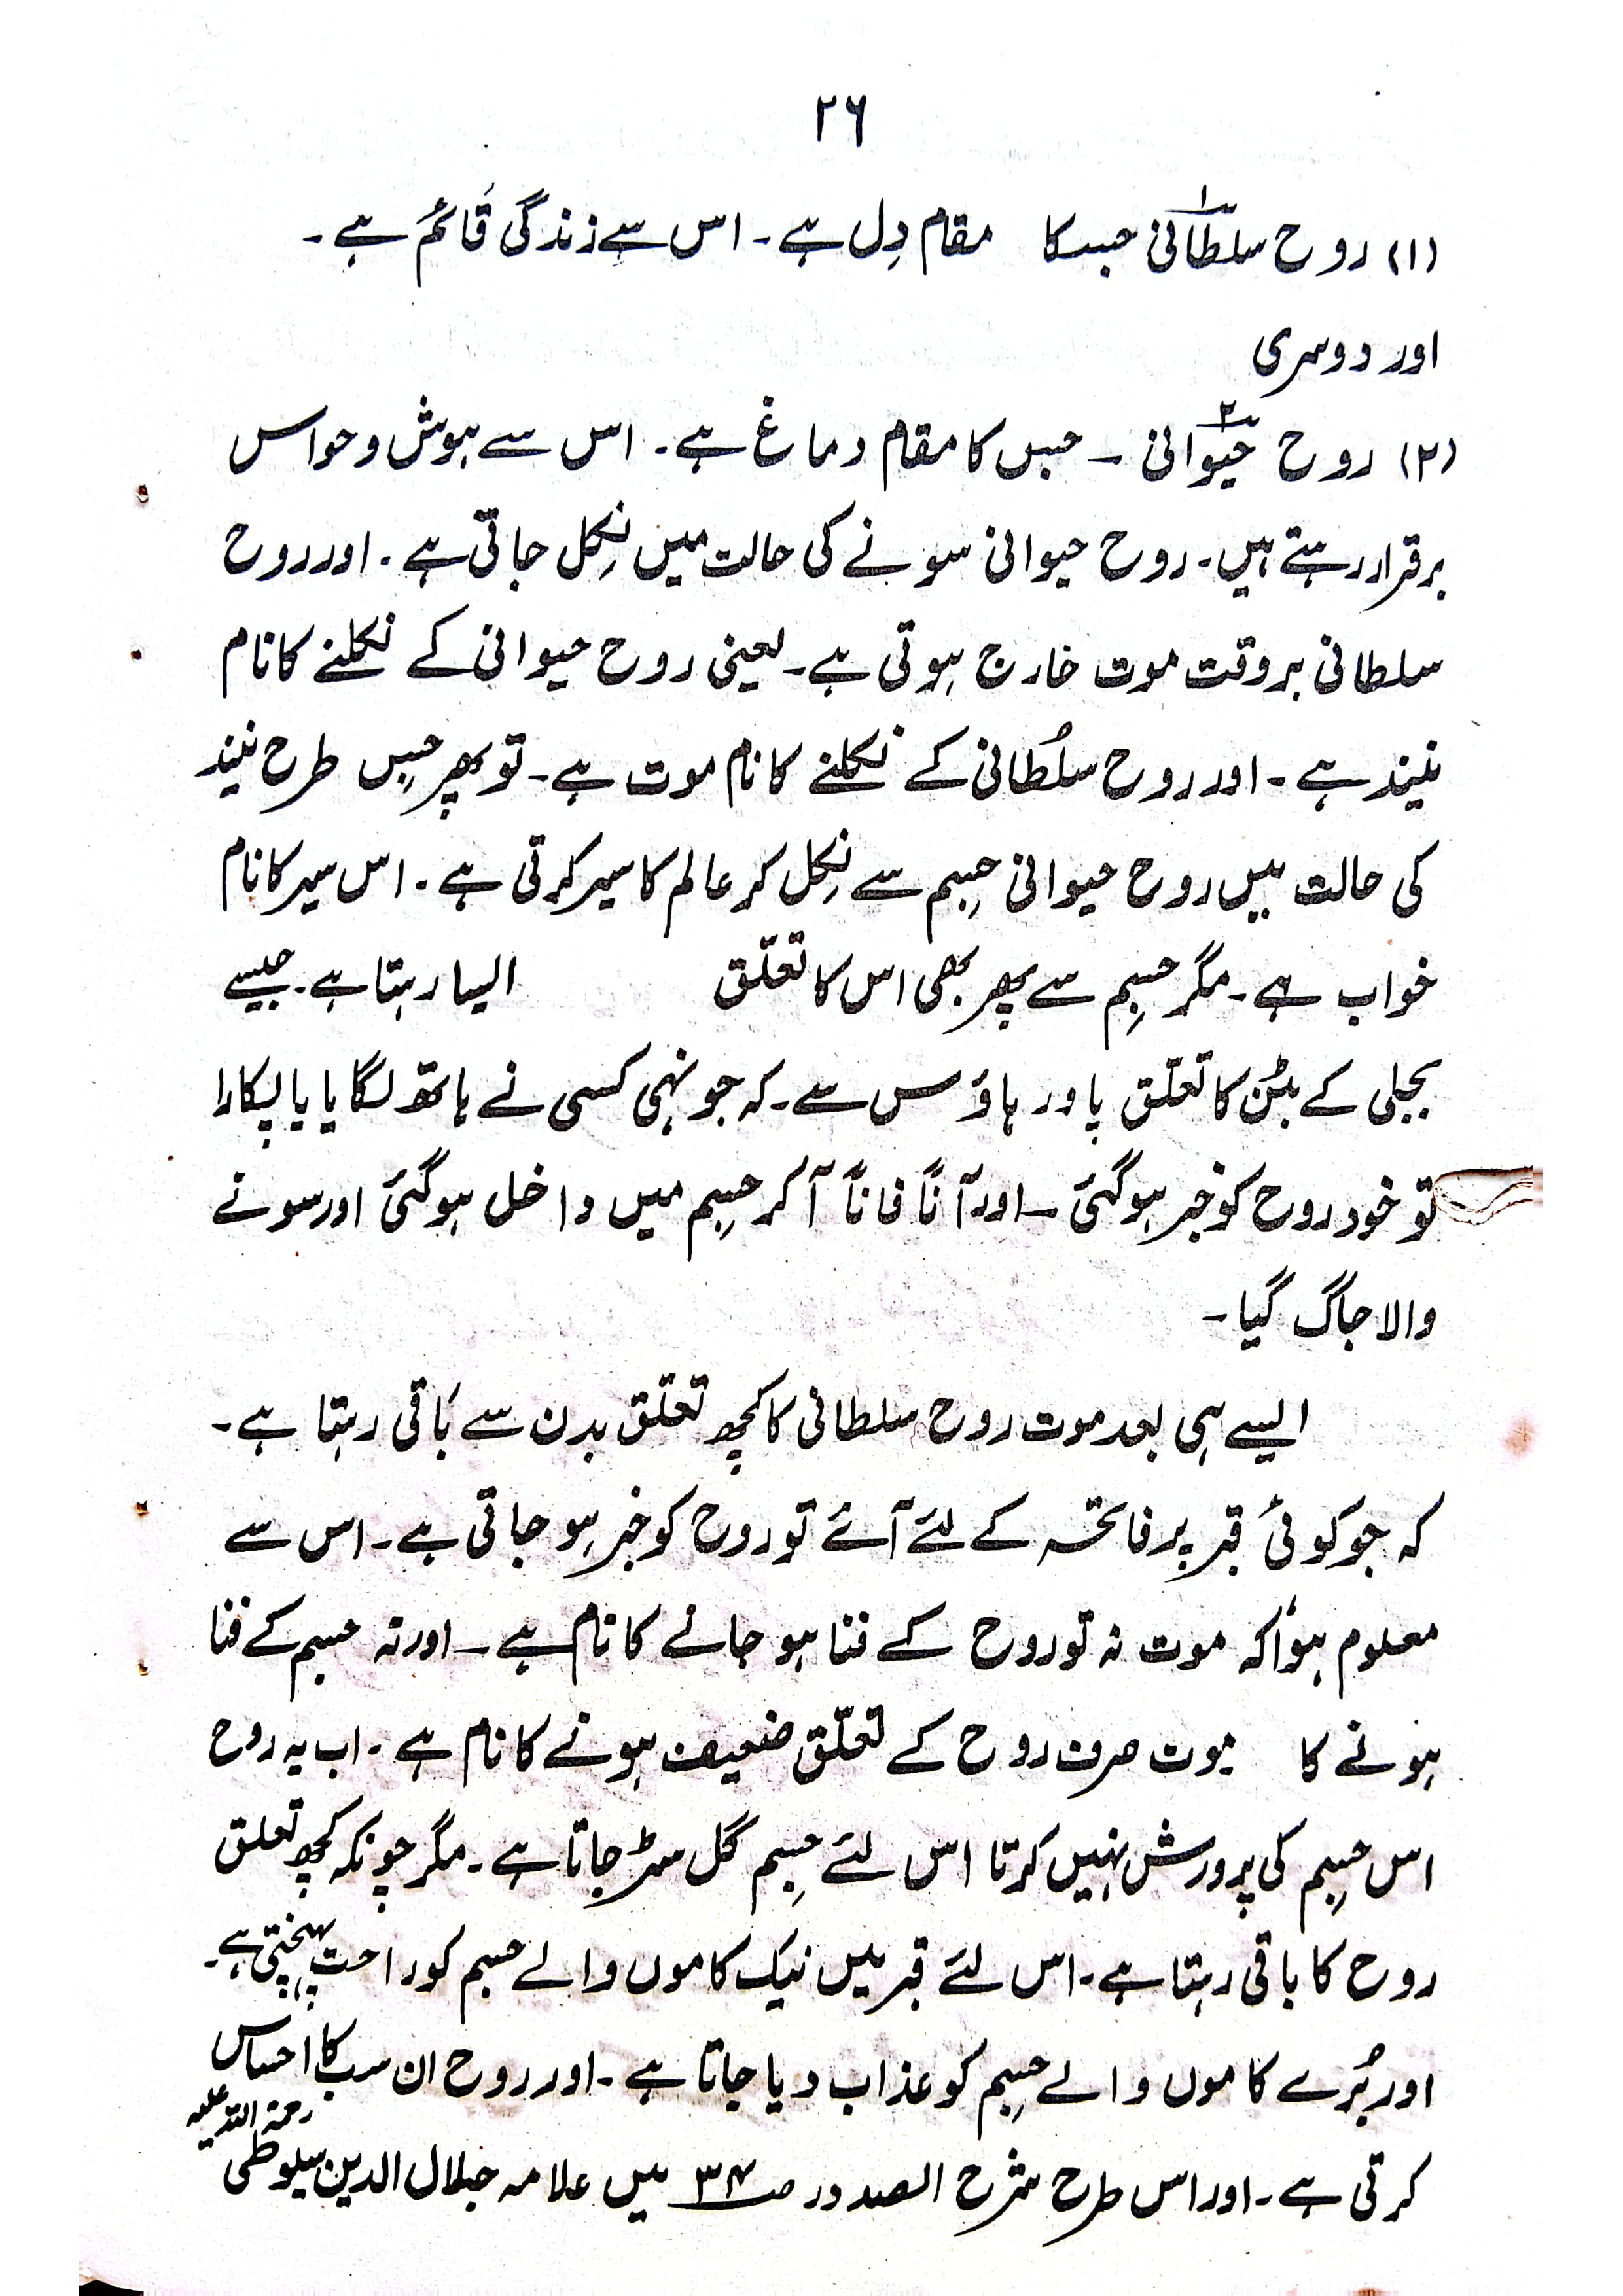 ۲۶
(۱) روح سلطانی جسکا مقام دِل ہے۔ اس سے زندگی قائم ہے۔
اور دوسری
(۲) روح حیوانی ۔ جس کا مقام دماغ ہے۔ اس سے ہوش و حواس
برقرار رہتے ہیں۔ روح حیوانی سونے کی حالت میں نِکل جاتی ہے۔ اور روح
سلطانی بروقت موت خارج ہوتی ہے۔ یعنی روح حیوانی کے نکلنے کا نام
نیند ہے۔ اور روح سُلطانی کے نکلنے کا نام موت ہے۔ تو پھر جس طرح نیند
کی حالت میں روح حیوانی جِسم سے نِکل کر عالم کا سیر کرتی ہے۔ اس سیر کا نام
خواب ہے۔ مگر جِسم سے پھر بھی اس کا تعلّق ایسا رہتا ہے۔ جیسے
بجلی کے بٹن کا تعلّق پاور ہاؤس سے۔ کہ جونہی کسی نے ہاتھ لگایا یا پکارا
تو خود روح کو خبر ہوگئی ۔ اور آناً فاناً آ کر جِسم میں داخل ہوگئی اور سونے
والا جاگ گیا۔
ایسے ہی بعد موت روح سلطانی کا کچھ تعلّق بدن سے باقی رہتا ہے۔
کہ جو کوئی قبر پر فاتحہ کے لئے آئے تو روح کو خبر ہو جاتی ہے۔ اس سے
معلوم ہوا کہ موت نہ تو روح کے فنا ہو جانے کا نام ہے ۔ اور نہ جسم کے فنا
ہونے کا موت صرف روح کے تعلّق ضعیف ہونے کا نام ہے۔ اب یہ روح
اس جِسم کی پرورش نہیں کرتا اس لئے جِسم گل سڑ جاتا ہے۔ مگر چونکہ کچھ تعلق
روح کا باقی رہتا ہے۔ اس لئے قبر میں نیک کاموں والے جسم کو راحت پہنچتی ہے۔
اور بُرے کاموں والے جِسم کو عذاب دیا جاتا ہے۔ اور روح ان سب کا احساس
کرتی ہے۔ اور اس طرح شرح الصدور صـ۳۴ میں علامہ جلال الدین سیوطی رحمۃ اللہ علیہ